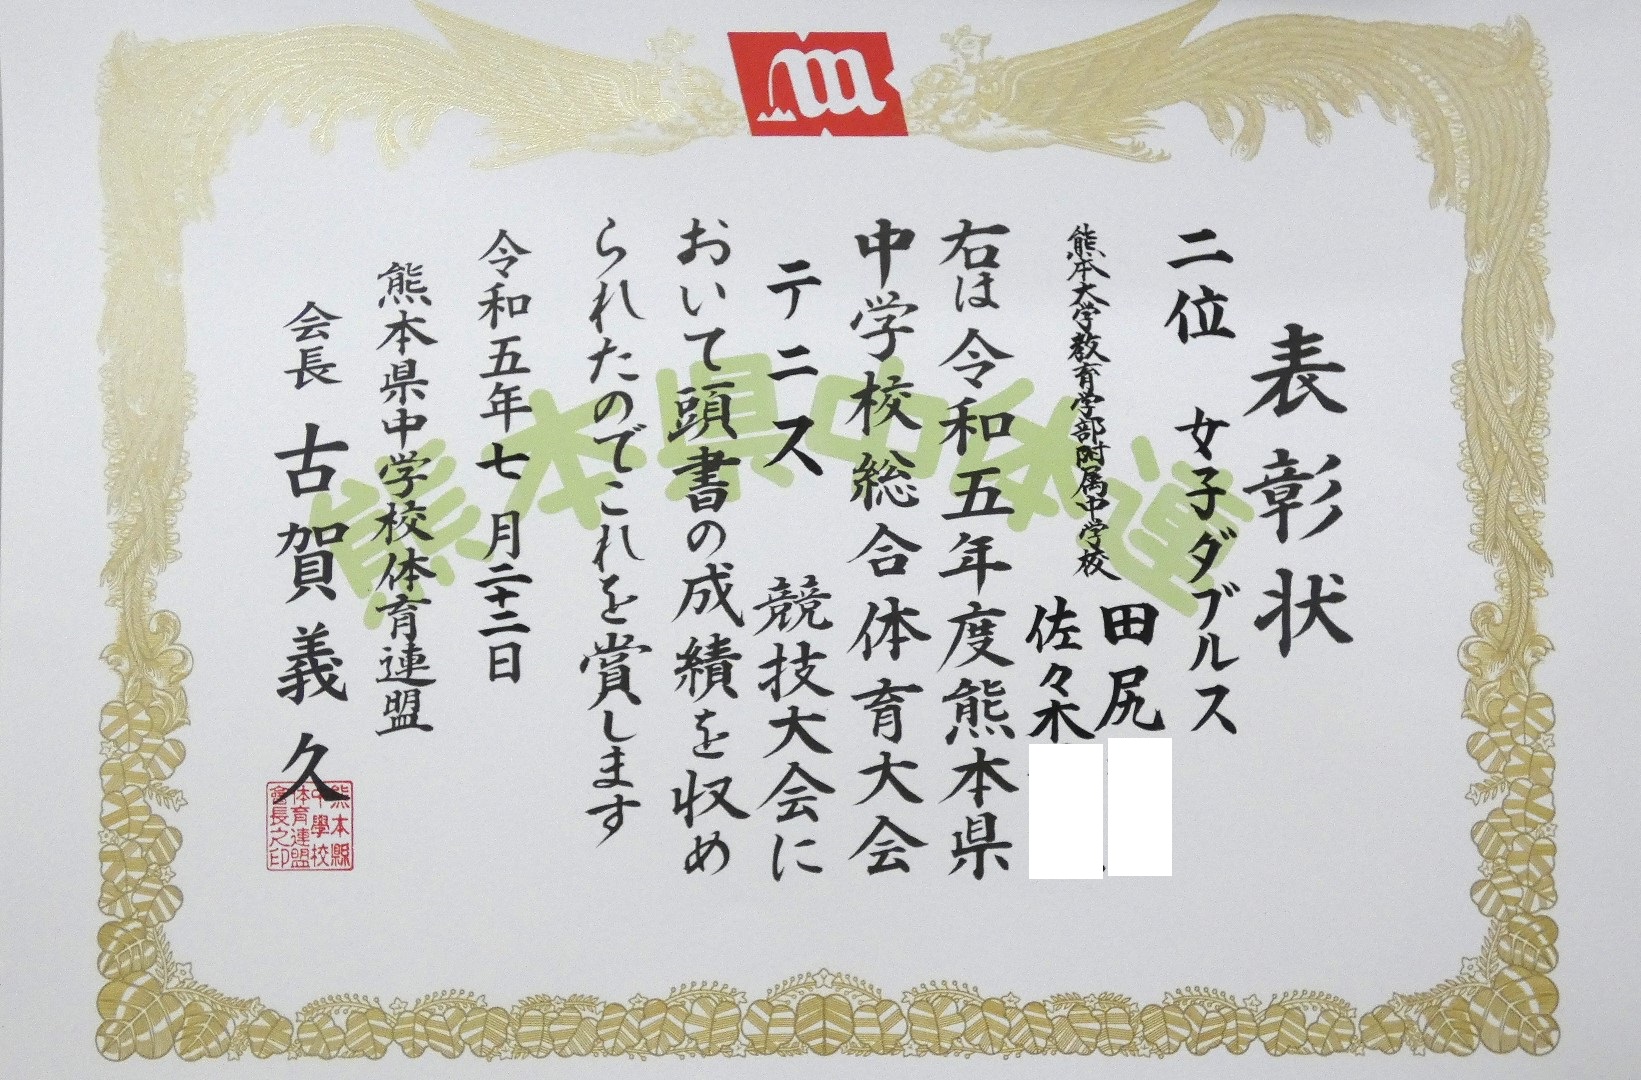 表彰状
二位 女子ダブルス
熊本大学教育学部附属中学校
田尻
佐々木
右は令和五年度熊本県
中学校総合体育大会
テニス 競技大会に
おいて頭書の成績を収め
られたのでこれを賞します
令和五年七月二十二日
熊本県中学校体育連盟
会長 古賀義久
熊本縣
中學校
体育連盟
會長之印
熊本県中体連